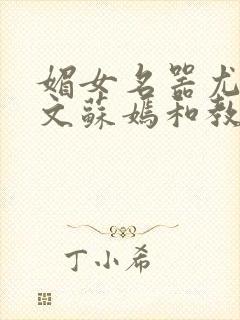 媚女名器尤
文蘇媽和教
丁小希